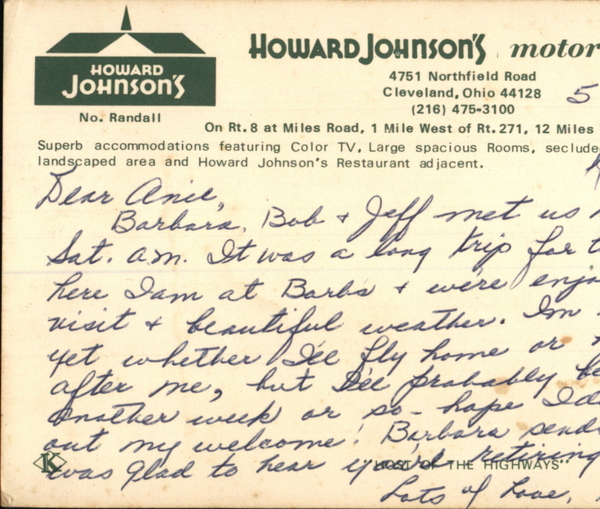 HOWARD JOHNSON'S
No. Randall
HOWARD JOHNSON'S motor
4751 Northfield Road
Cleveland, Ohio 44128
(216) 475-3100
5
On Rt. 8 at Miles Road, 1 Mile West of Rt. 271, 12 Miles
Superb accommodations featuring Color TV, Large spacious Rooms, seclude
landscaped area and Howard Johnson's Restaurant adjacent.
Dear Anie,
Barbara, Bob + Jeff met us
Sat. a.m. It was a long trip for t
here I am at Barbs + we're enjo
visit + beautiful weather. I'm
yet whether I'll fly home or
after me, but I'll probably be
another week or so - hope I do
out my welcome! Barbara sends
was glad to hear you're retiring
K
"HOST OF THE HIGHWAYS"
Lots of Love,